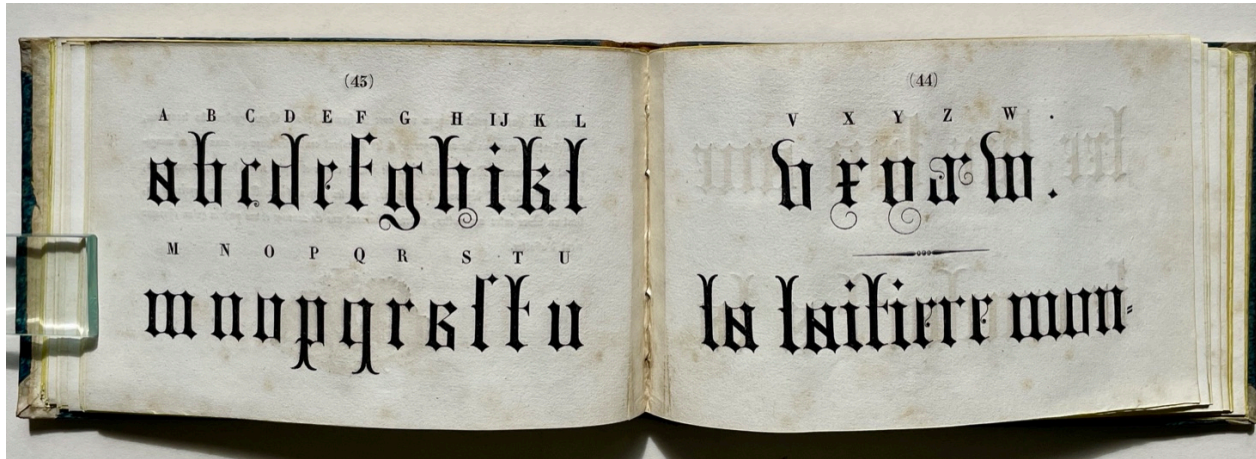 (43)
A B C D E F G H IJ K L
a b c d e f g h i k l
M N O P Q R S T U
m n o p q r s ſ t u
(44)
V X Y Z W .
v x y z w .
la laitierre mon⸗